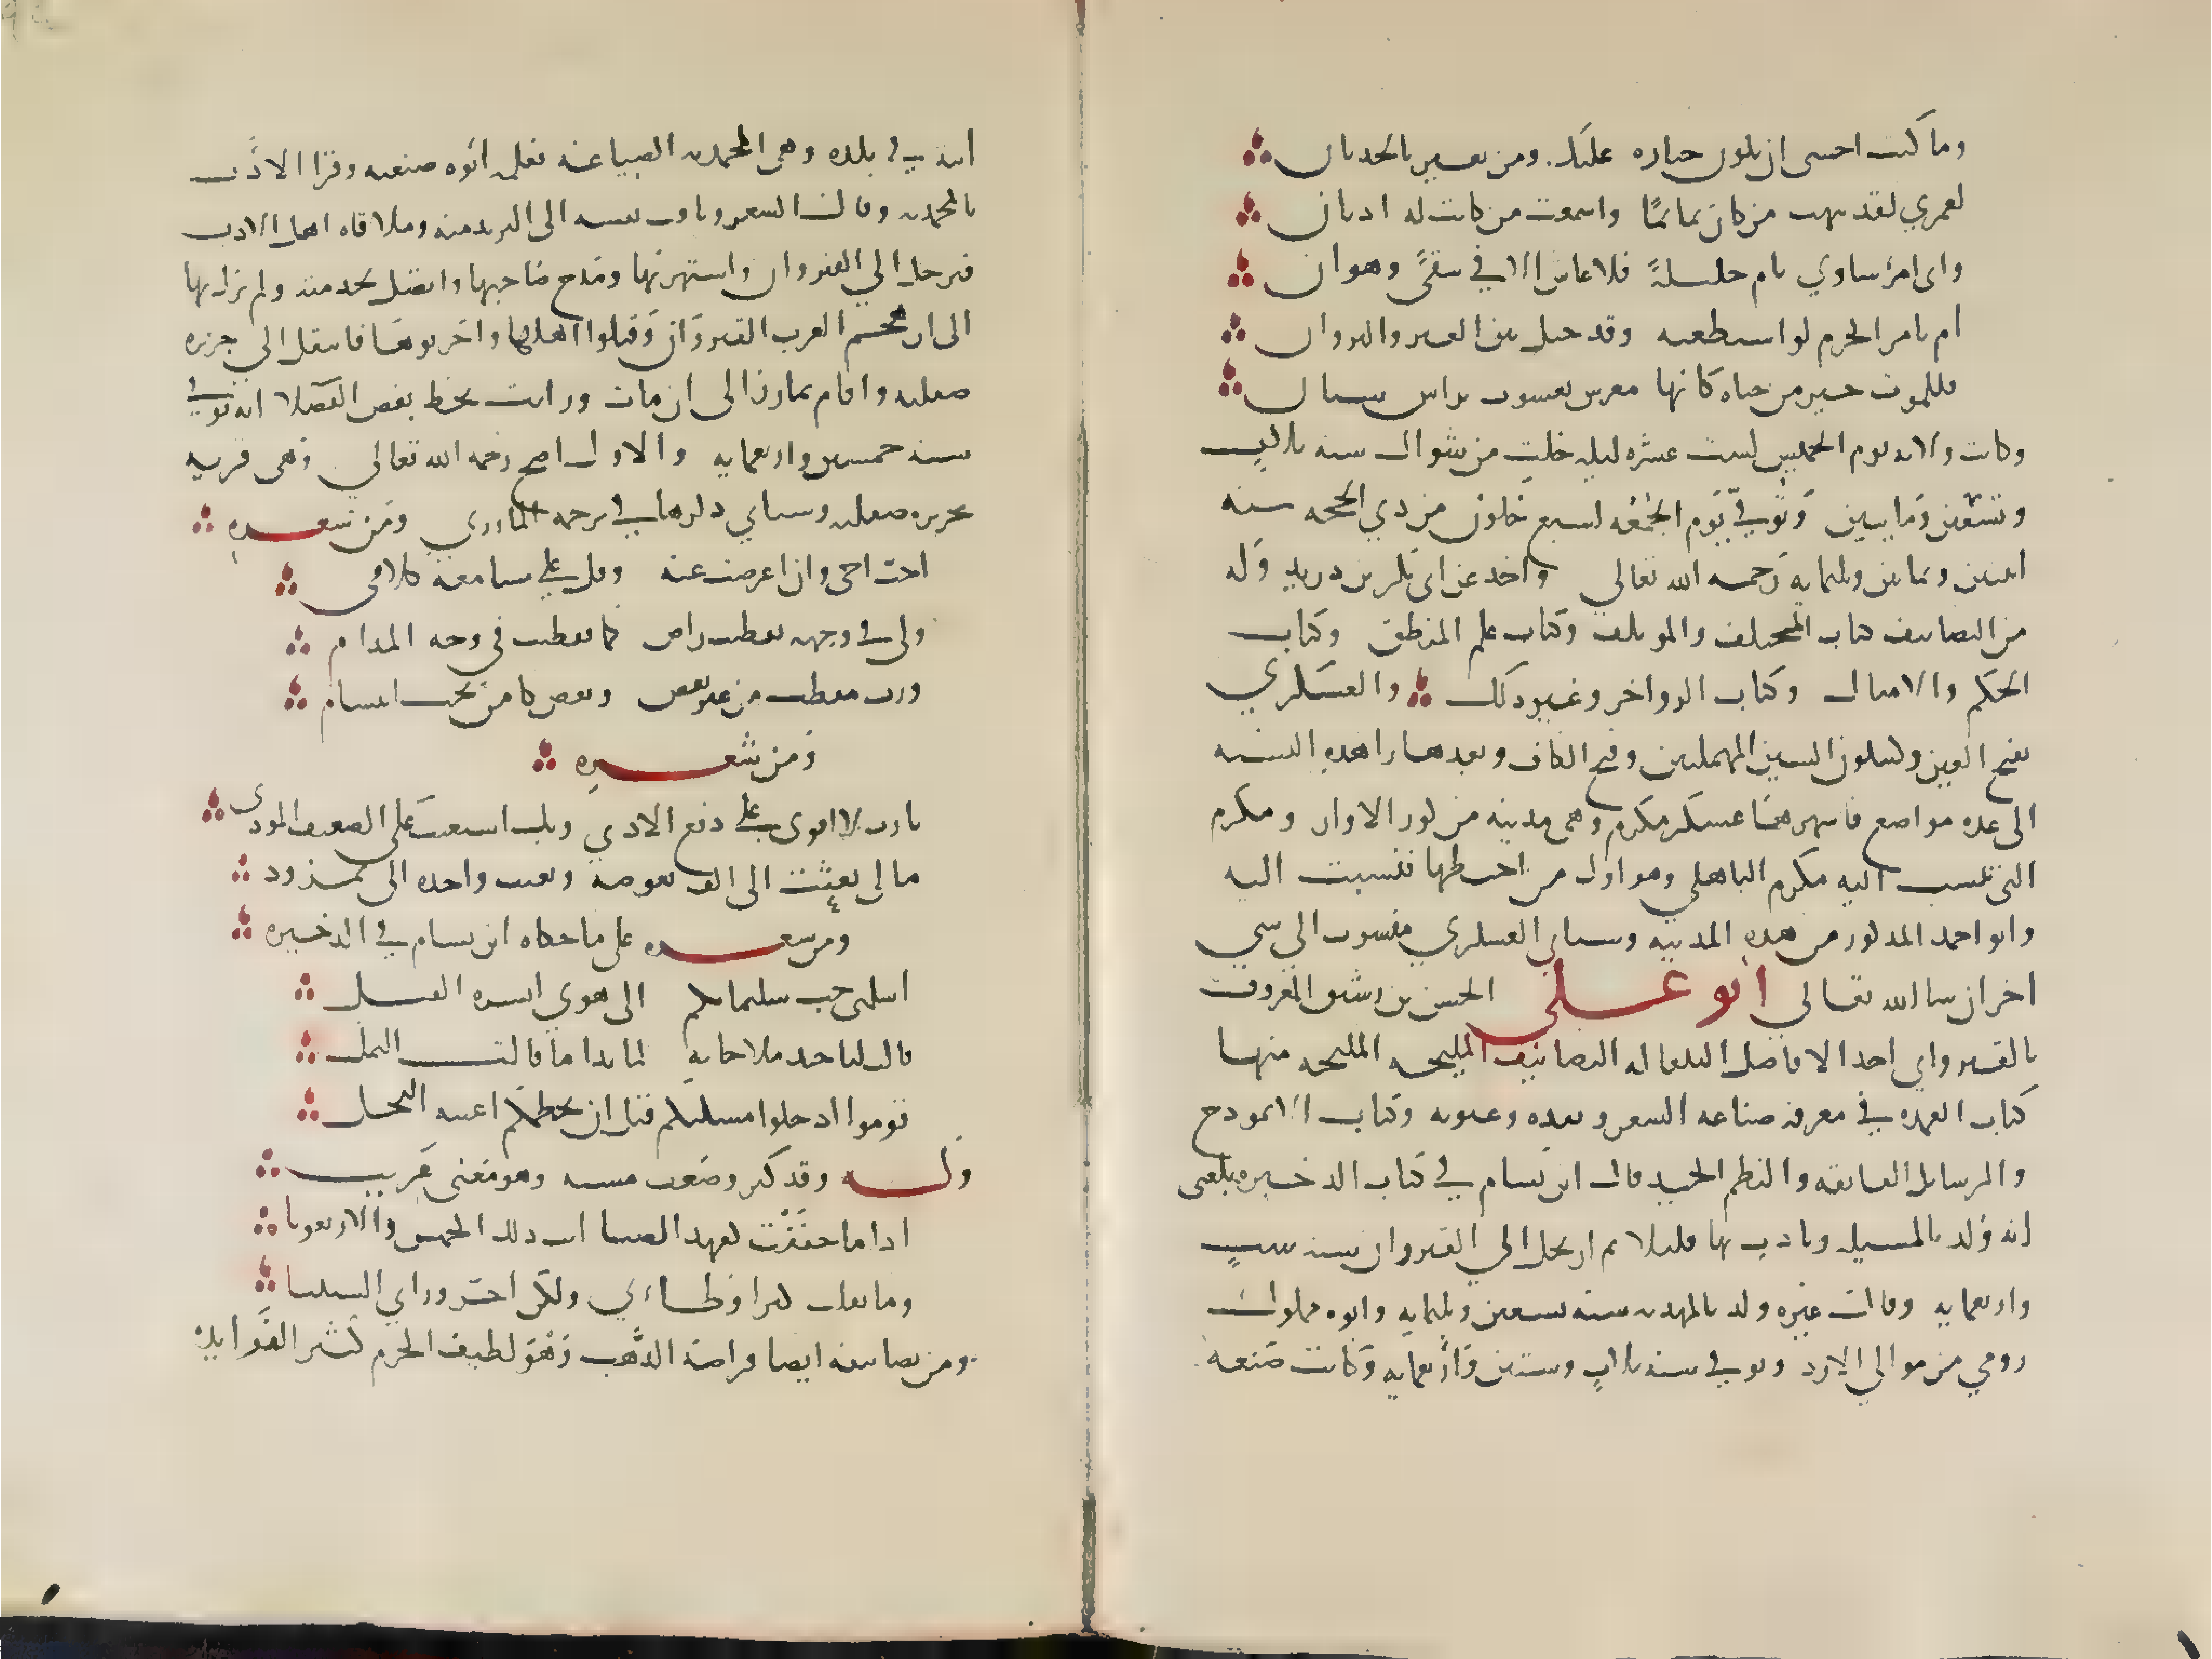 وما كنت اخشى ان تكون جنازة عليك ومن يغتر بالحدثان
لعمري لقد نبهت من كان نائمًا واسمعت من كانت له اذنان
واى امرئ ساوى بام حليلةً فلا عاش الا في شقىً وهوان
اهم بامر الحزم لو استطيعه وقد حيل بين العير والنزوان
فللموت خير من حياة كانها معرس يعسوب براس سنان
وكانت ولادته يوم الخميس لست عشره ليلة خلت من شوال سنه ثلاث
وتسعين ومايتين وتوفي يوم الجمعه لسبع خلون من ذي الحجه سنه
اثنين وثمانين وثلثمايه رحمه الله تعالي واخذ عن ابى بكر بن دريد وله
من التصانيف كتاب المختلف والموتلف وكتاب علم المنطق وكتاب
الحكم والامثال وكتاب الزواجر وغير ذلك والعسكري
بفتح العين وسكون السين المهملتين وفتح الكاف وبعدها را هذه النسبه
الى عده مواضع فاشهرها عسكر مكرم وهي مدينه من كور الاهواز ومكرم
التى تنسب اليه مكرم الباهلي وهو اول من اختطها فنسبت اليه
وابو احمد المذكور من هذه المدينه وسياتى العسكري منسوب الى شي
اخر ان شا الله تعالي ابو علي الحسن بن رشيق المعروف
بالقيرواني احد الافاضل البلغا له التصانيف المليحه المليحه منها
كتاب العمده في معرفه صناعه الشعر ونقده وعيوبه وكتاب الانموذج
والرسايل الفايقه والنظم الجيد قال ابن بسام في كتاب الذخيره بلغنى
انه ولد بالمسيله وتادب بها قليلا ثم ارتحل الي القيروان سنه ست
واربعمايه وقال غيره ولد بالمهديه سنه تسعين وثلثمايه وابوه مملوك
رومي من موالي الازد وتوفي سنه ثلاث وستين واربعمايه وكانت صنعه
ابيه في بلده وهي المحمديه الصياغه فعلمه ابوه صنعته وقرا الادب
بالمحمديه وقال الشعر وتاقت نفسه الى التزيد منه وملاقاه اهل الادب
فرحل الي القيروان واشتهر بها ومدح صاحبها واتصل بخدمته ولم يزل بها
الى ان هجم العرب القيروان وقتلوا اهلها واخربوها فانتقل الى جزيره
صقليه واقام بمازر الى ان مات ورايت بخط بعض الفضلا انه توفي
سنه خمسين واربعمايه والاول اصح رحمه الله تعالي وهي قريه
بجزيره صقليه وسياتي ذكرها في ترجمه المازري ومن شعره
احب اخى وان اعرضت عنه وقل على مسامعه كلامى
ولى فى وجهه تقطيب راض كما تقطب فى وجه المدام
ورب تقطب من غير بغض وبغض كامن تحت ابتسام
ومن شعره
يا رب لا اقوى على دفع الاذي وبك استعنت على الضعيف الموذى
مالى بعثت الى الف بعوضه وبعثت واحده الى نمروذ
ومن شعره على ما حكاه ابن بسام في الذخيره
اسلمنى حب سليمانكم الى هوي ايسره القتل
قالت لنا جند ملاحاته لما بدا ما قالت النمل
قوموا ادخلوا مسكنكم قبل ان تحطمكم اعينه النجل
وله وقد كبر وضعف مشيه وهو معنى غريب
اذا ما خففت لعهد الصبا ابت ذلك الخمس والاربعونا
وما ثقلت كبرا وطاءتي ولكن اجر وراي السنينا
ومن تصانيفه ايضا قراضة الذهب وهو لطيف الجرم كثير الفوايد